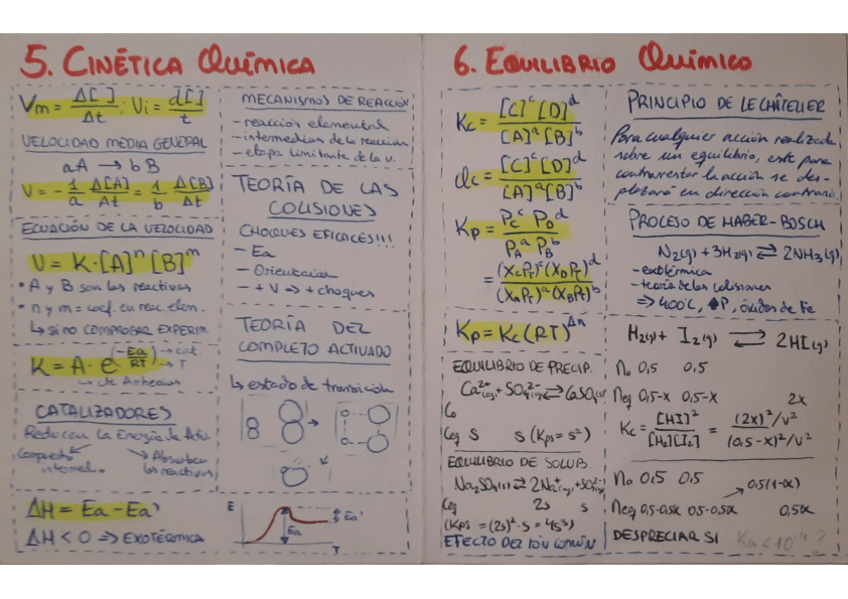 5. CINÉTICA QUÍMICA
Vm = Δ[ ]/Δt ; Vi = d[ ]/t
VELOCIDAD MEDIA GENERAL
aA → bB
V = -1/a Δ[A]/Δt = 1/b Δ[B]/Δt
ECUACIÓN DE LA VELOCIDAD
V = K·[A]ⁿ[B]ᵐ
• A y B son los reactivos
• n y m = coef. en reac elem.
↳ si no COMPROBAR EXPERIM.
K = A · e^(-Ea/RT) → cat.
→ T
↳ cte Arrhenius
CATALIZADORES
Reducen la Energía de Activ.
Compuesto intermed.
Absorben los reactivos
ΔH = Ea - Ea'
ΔH < 0 ⇒ EXOTÉRMICA
MECANISMOS DE REACCIÓN
- reacción elemental
- intermedios de la reacción
- etapa limitante de la v.
TEORÍA DE LAS
COLISIONES
CHOQUES EFICACES!!!
- Ea
- Orientación
- + V → + choques
TEORÍA DEL
COMPLEJO ACTIVADO
↳ estado de transición
E
Ea
Ea'
T
6. EQUILIBRIO QUÍMICO
Kc = [C]ᶜ[D]ᵈ/[A]ᵃ[B]ᵇ
Qc = [C]ᶜ[D]ᵈ/[A]ᵃ[B]ᵇ
Kp = Pcᶜ PDᵈ/PAᵃ PBᵇ
= (XcPT)ᶜ(XDPT)ᵈ/(XAPT)ᵃ(XBPT)ᵇ
Kp = Kc(RT)^Δn
EQUILIBRIO DE PRECIP.
Ca²⁺(aq) + SO₄²⁻(aq) ⇌ CaSO₄(s)
Co
Ceq S S (Kps = s²)
EQUILIBRIO DE SOLUB.
Na₂SO₄(s) ⇌ 2Na⁺(aq) + SO₄²⁻(aq)
Ceq 2s s
(Kps = (2s)²·s = 4s³)
EFECTO DEL IÓN COMÚN
PRINCIPIO DE LE CHÂTELIER
Para cualquier acción realizada
sobre un equilibrio, este para
contrarrestar la acción se des-
plazará en dirección contraria.
PROCESO DE HABER-BOSCH
N₂(g) + 3H₂(g) ⇌ 2NH₃(g)
- exotérmica
- teoría de las colisiones
⇒ 400°C, P, óxidos de Fe
H₂(g) + I₂(g) ⇌ 2HI(g)
no 0,5 0,5
neq 0,5-x 0,5-x 2x
Kc = [HI]²/[H₂][I₂] = (2x)²/v²/(0,5-x)²/v²
no 0,5 0,5
0,5(1-α)
neq 0,5-0,5α 0,5-0,5α 0,5α
DESPRECIAR SI Ka < 10⁻⁴ ?